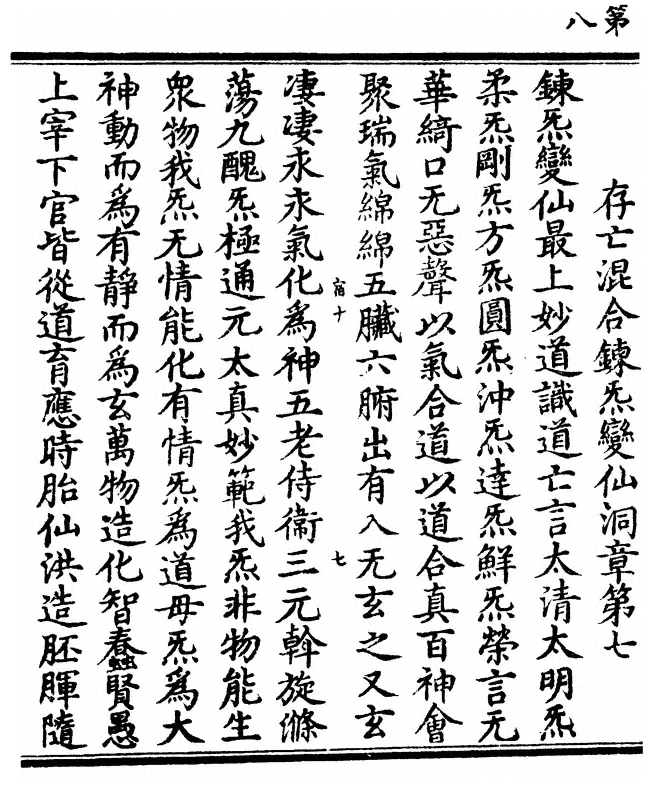 第
八
存亡混合鍊炁變仙洞章第七
鍊炁變仙最上妙道識道亡言太清太明炁
柔炁剛炁方炁圓炁沖炁達炁鮮炁榮言无
華綺口无惡聲以氣合道以道合真百神會
聚瑞氣綿綿五臟六腑出有入无玄之又玄
宿十
七
凄凄永永氣化為神五老侍衞三元斡旋滌
蕩九醜炁極通元太真妙範我炁非物能生
衆物我炁无情能化有情炁為道母炁為大
神動而為有靜而為玄萬物造化智蠢賢愚
上宰下官皆從道育應時胎仙洪造胚腪隨